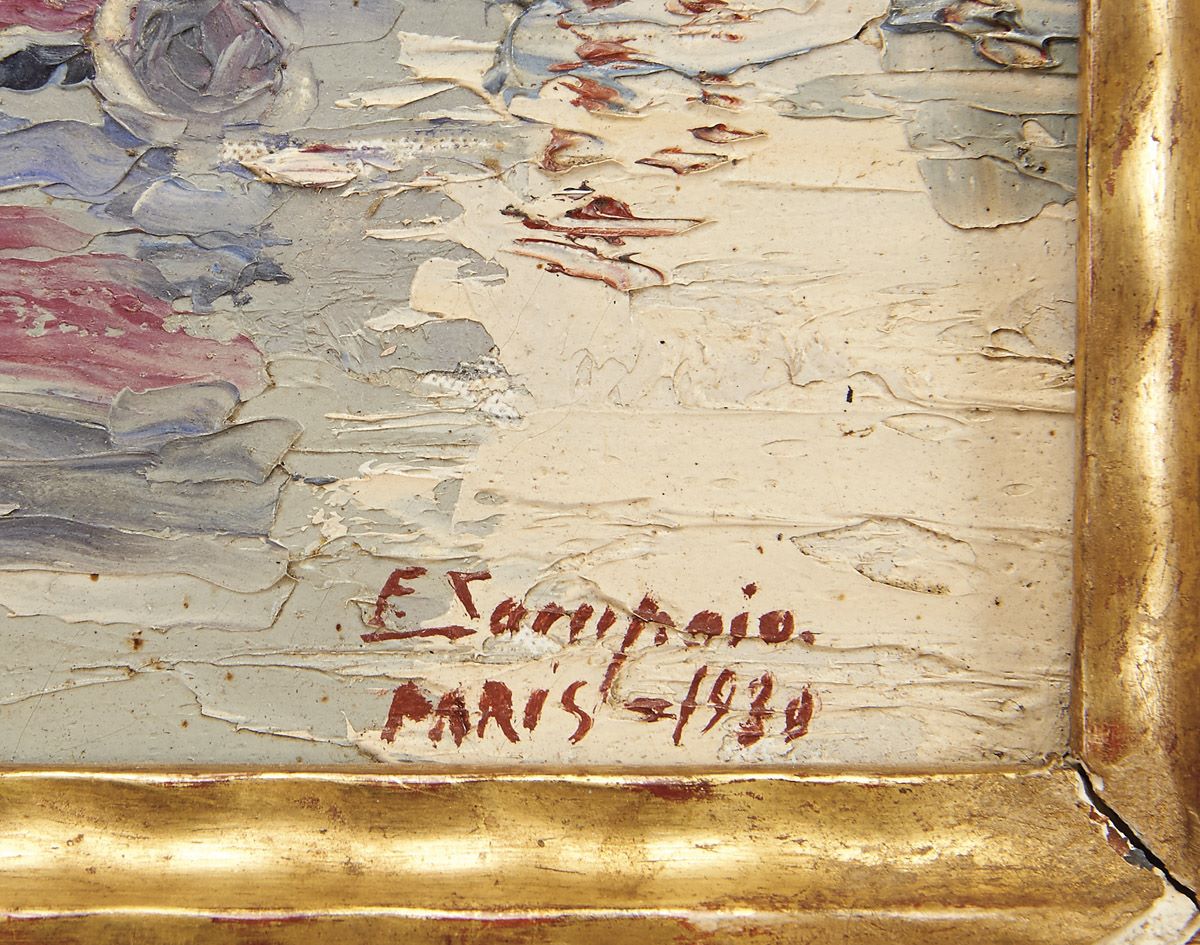 E Sampaio.
PARIS - 1930